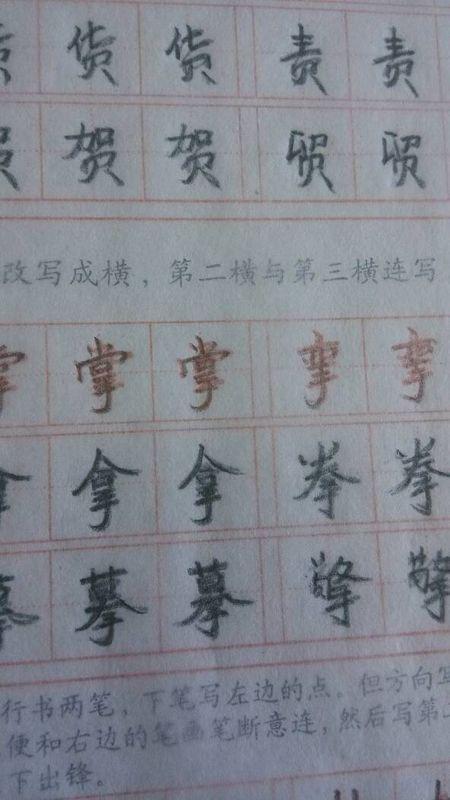 货 货 责 责
贺 贺 贸 贸
改写成横，第二横与第三横连写
掌 掌 挛 挛
拿 拿 拳 拳
摹 摹 擎 擎
行书两笔，下笔写左边的点。但方向写
便和右边的笔画笔断意连，然后写第二
下出锋。